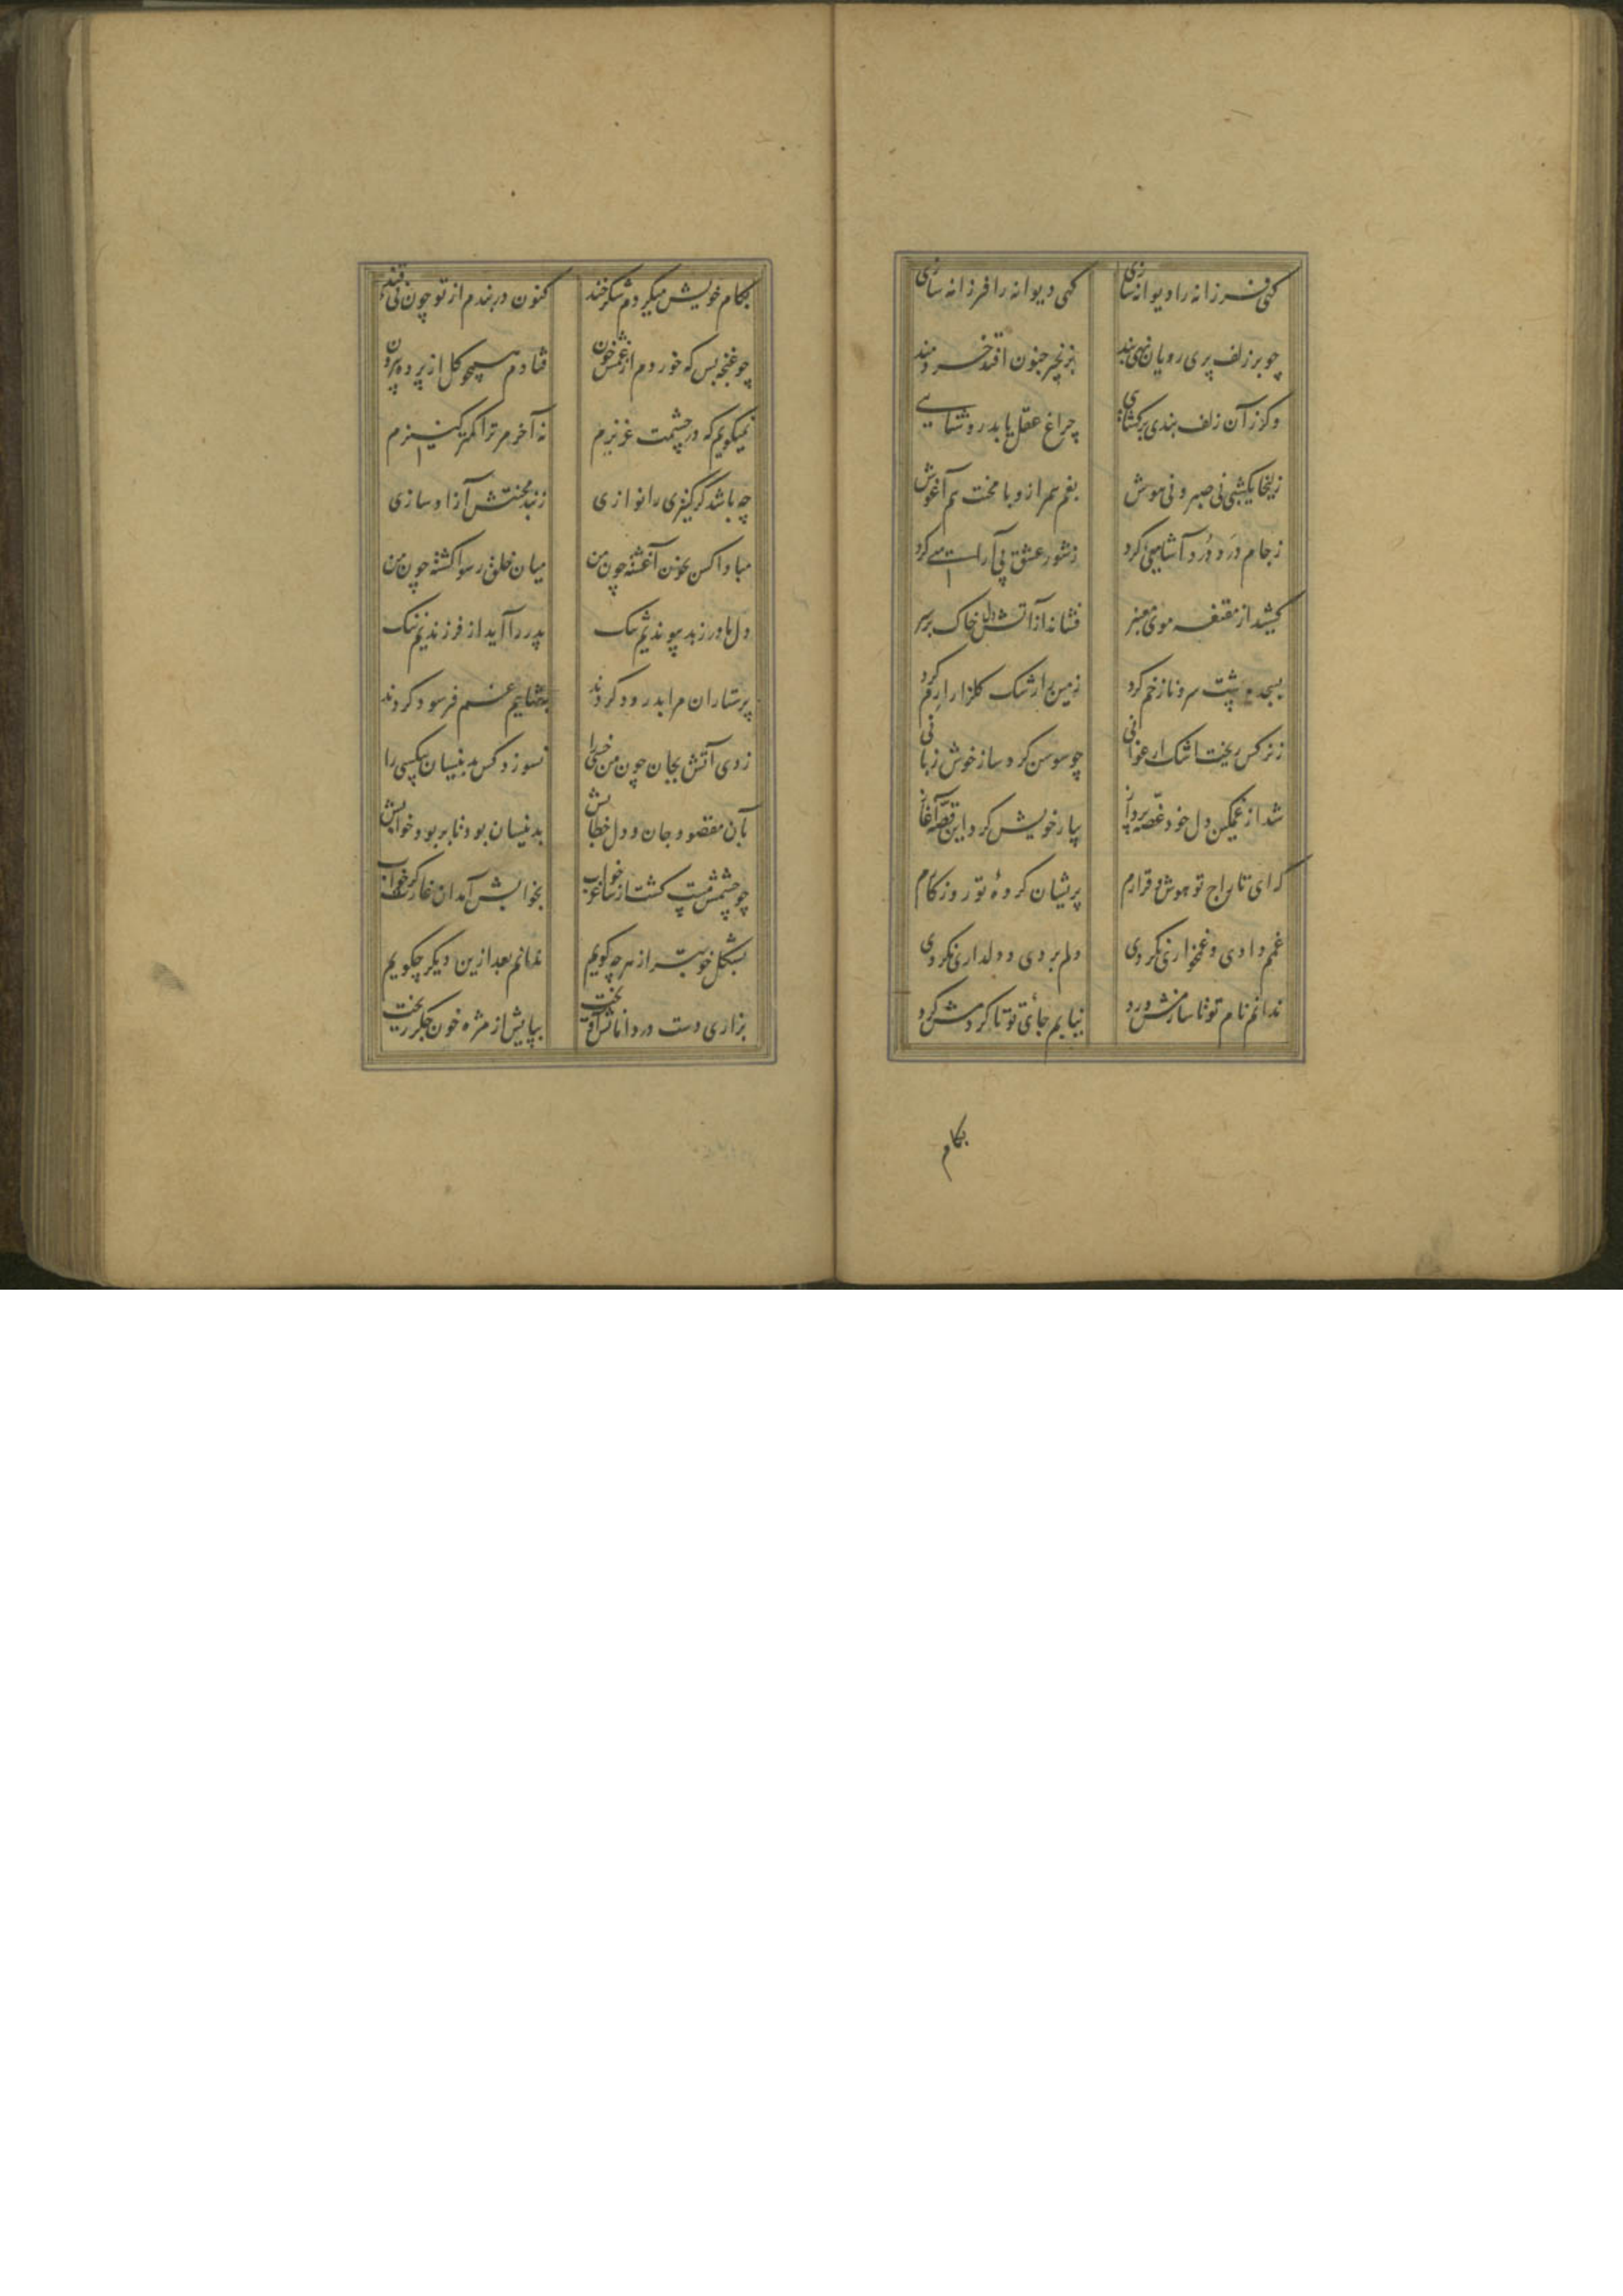 گهی فرزانه را دیوانه سازی گهی دیوانه را فرزانه سازی
چو بر زلف پری رویان نهی بند بزنجیر جنون افتد خردمند
وگر زان زلف بندی برگشائی چراغ عقل یابد روشنایی
زلیخا یکشبی نی صبر و نی هوش بغم همراز و با محنت هم آغوش
ز جام درد درد آشامیی کرد ز شور عشق بی آرامیی کرد
کشید از مقنعه موی معنبر فشاند از آتش دل خاک بر سر
بسجده پشت سرو ناز خم کرد زمین را رشک گلزار ارم کرد
ز نرکس ریخت اشک ارغوانی چو سوسن کرد ساز خوش زبانی
شد از غمکین دل خود غصه پرداز بیار خویش کرد این قصه آغاز
که ای تاراج تو هوش و قرارم پریشان کرده تو روزکارم
غمم دادی و غمخواری نکردی دلم بردی و دلداری نکردی
ندانم نام تو تا سازمش ورد نیابم جای تو تا کردمش کرد
بکام
بکام خویش میکردم شکرخند کنون در بندم از تو چون نی قند
چو غنچه بس که خوردم از غمش خون فتادم همچو کل از پرده بیرون
نمیکویم که در چشمت عزیزم نه آخر مر ترا کمتر کنیزم
چه باشد گر کنیزی را نوازی ز بند محنتش آزاد سازی
مبادا کس بخون آغشته چون من میان خلق رسوا کشته چون من
دل مادر ز بد پیوندیم تنک پدر را آید از فرزندیم ننک
پرستاران مرا بدرود کردند غم فرسود کردند
زدی آتش بجان چون من خسی را نسوزد کس بدینسان بیکسی را
بآن مقصود جان و دل خطابش بدینسان بود تا بربود خوابش
چو چشمش مست کشت از ساغر خواب بخوابش آمد آن غارتکر خواب
بشکلی خوبتر از هرچه کویم ندانم بعد ازین دیکر چکویم
بزاری دست در دامانش آویخت بپایش از مژه خون جکر ریخت